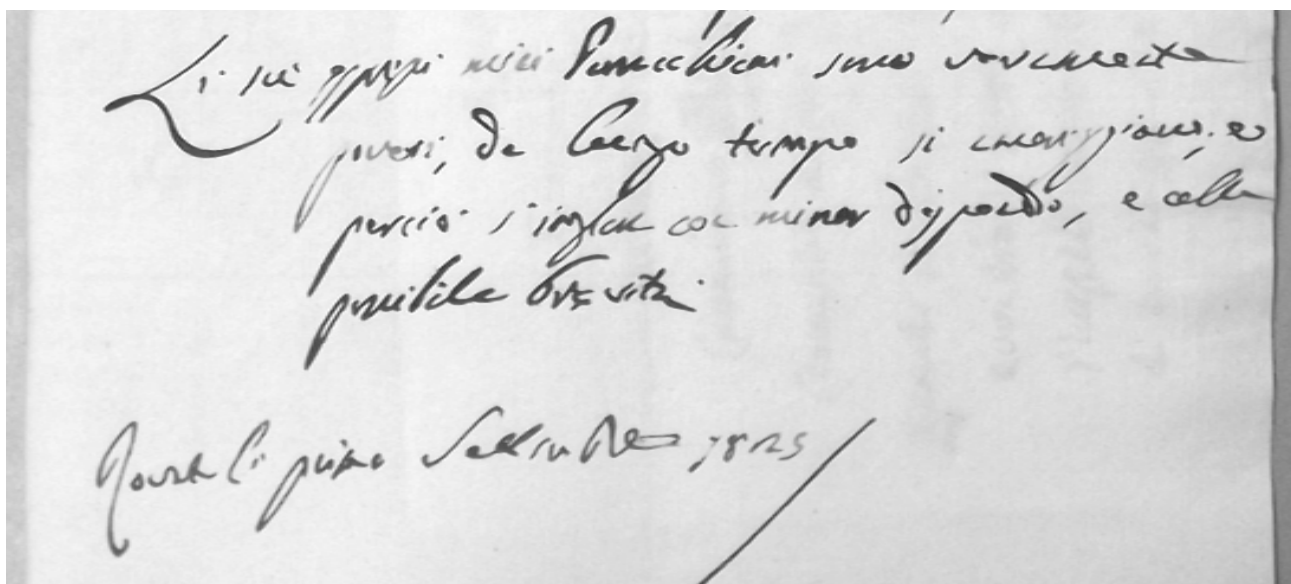 Li sù miei Parrocchiani sono veramente
poveri, da lungo tempo si
perciò s'implora con minor dispendio, e colla
possibile brevità.
li primo Settembre 1825